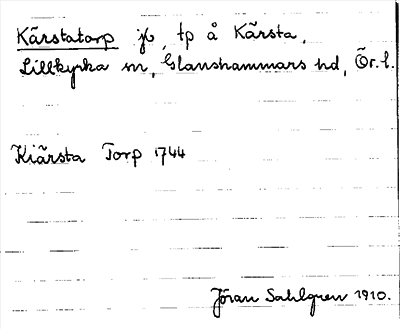 Kãrstatorp jb, tp å Kãrsta,
Lillkyrka sn, Glanshammars hd, Õr. l.
Kiãrsta Torp 1744
Jöran Sahlgren 1910.